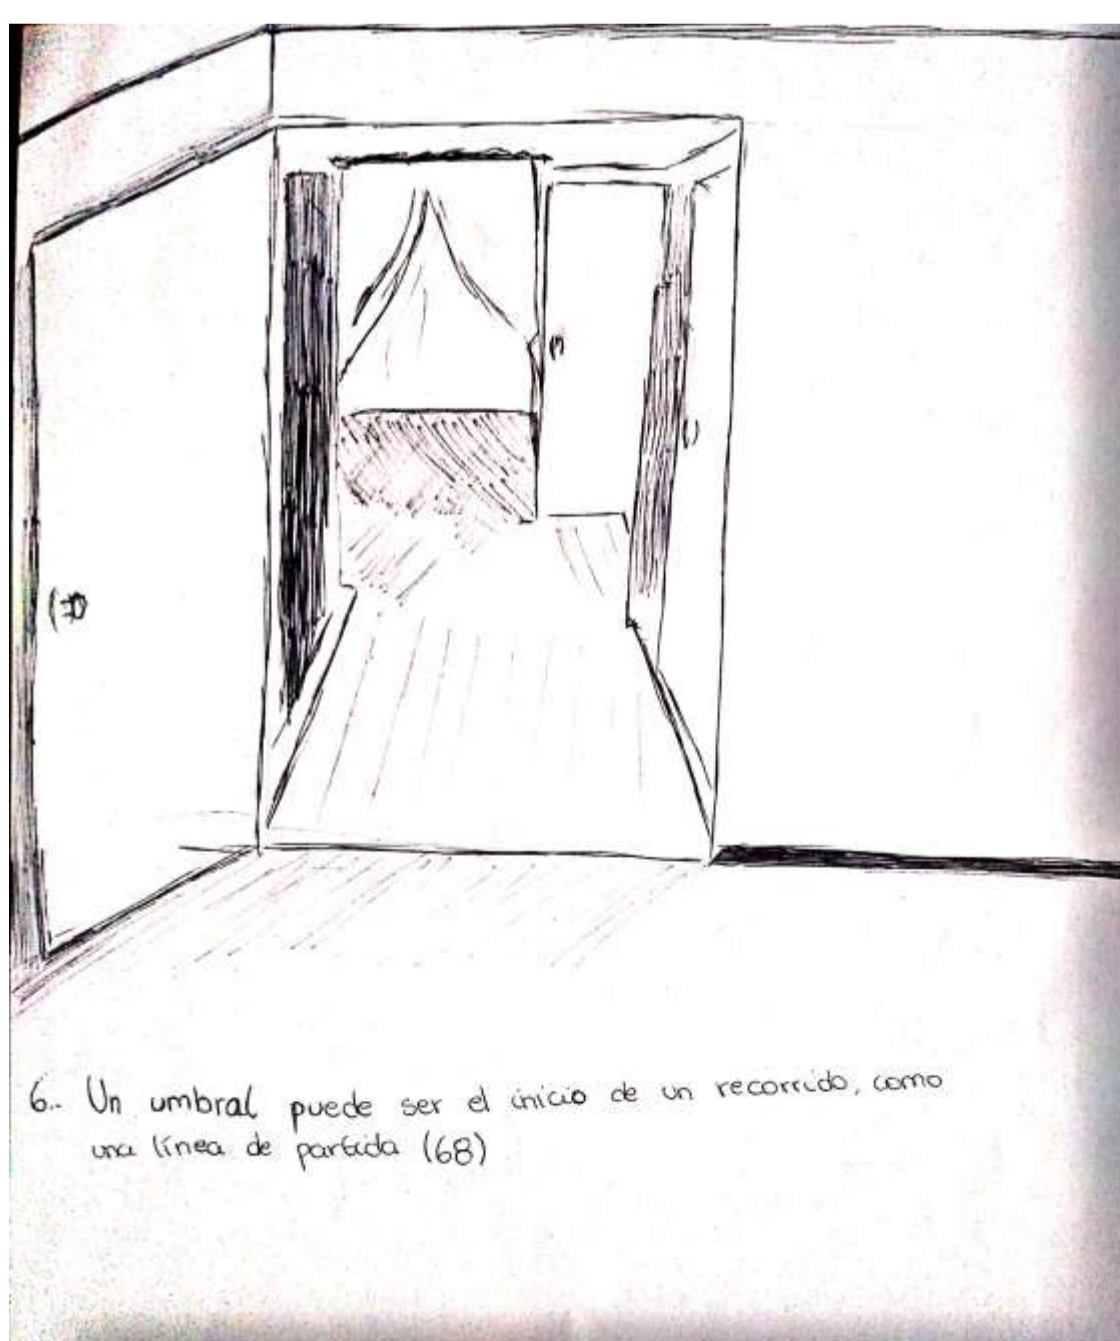 6.. Un umbral puede ser el inicio de un recorrido, como
una línea de partida (68)